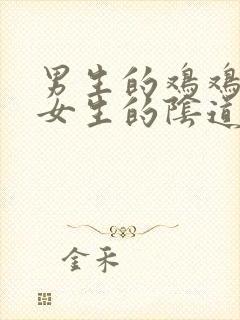 男生的鸡鸡
女生的陰道
金禾